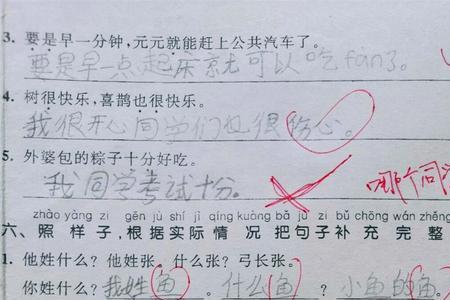 3. 要是早一分钟，元元就能赶上公共汽车了。
要是早一点起床就可以吃fàn了。
4. 树很快乐，喜鹊也很快乐。
我很开心同学们也很伤心。
5. 外婆包的粽子十分好吃。
我同学考试十分。
哪个同学
zhào yàng zi gēn jù shí jì qíng kuàng bǎ jù zi bǔ chōng wán zhěng
六、照 样 子，根据实际 情 况 把句子补 充 完 整
1. 他姓什么？他姓张。什么张？弓长张。
你姓什么？我姓鱼。什么鱼？小鱼的鱼。